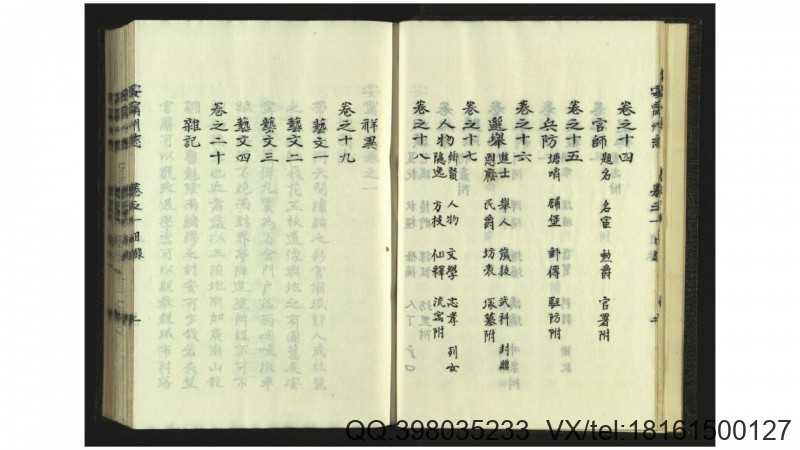 卷之十四
官師 題名 名宦 勲爵 官署附
卷之十五
兵防 塘哨 鋪堡 郵傳 駐防附
卷之十六
選舉 進士 舉人 武科 封贈
恩廕 民爵 坊表 塚墓附
卷之十七
人物 鄉賢 人物 文學 忠孝 列女
隱逸 方技 仙釋 流寓附
卷之十八
祥異
卷之十九
藝文一
藝文二
藝文三
藝文四
卷之二十
雜記
安寧州志 卷之一目錄
QQ:398035233 VX/tel:18161500127